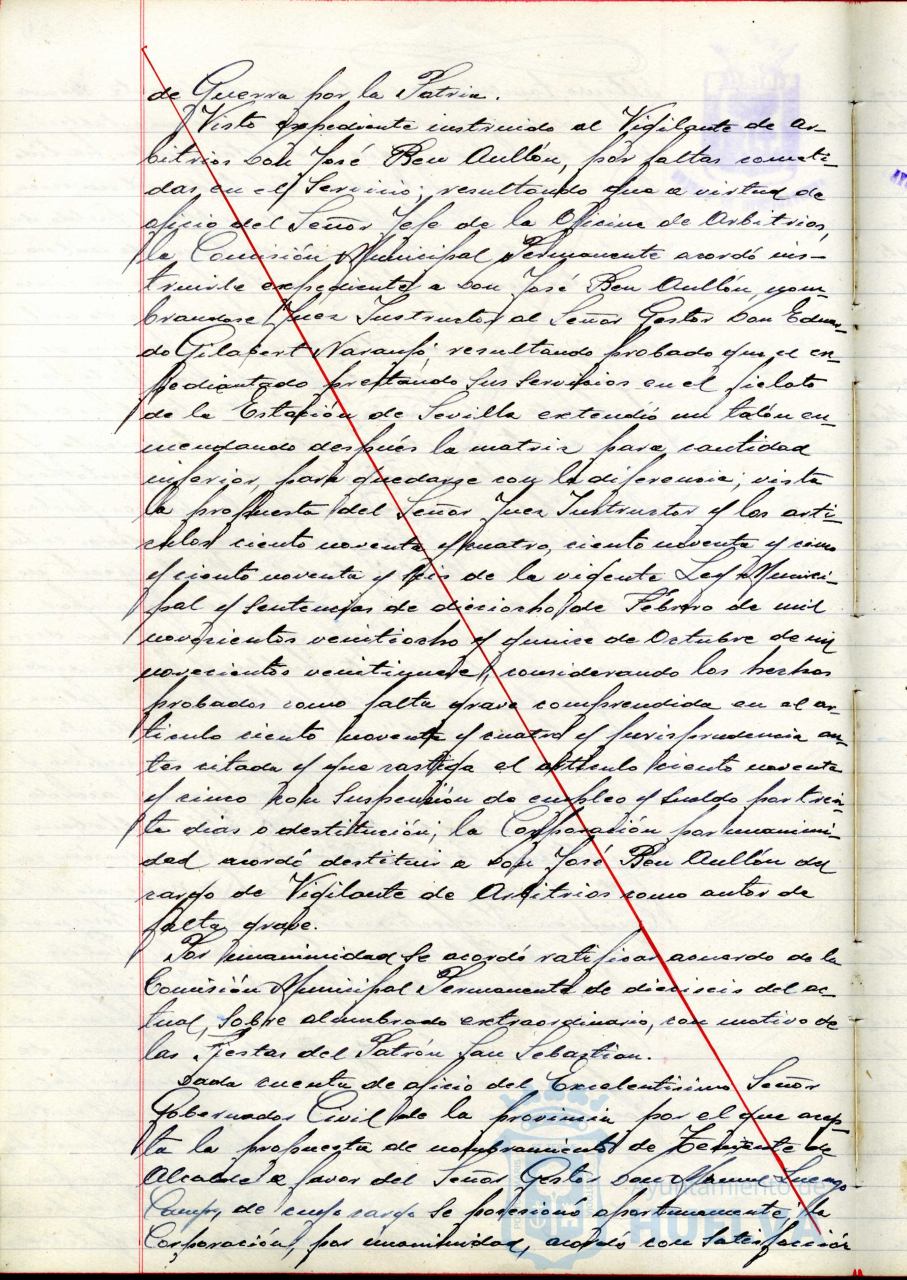 de Guerra por la Patria.
Visto expediente instruido al Vigilante de ar-
bitrios Don José Ben Aullón, por faltas cometi-
das en el Servicio; resultando que a virtud de
oficio del Señor Jefe de la Oficina de Arbitrios,
la Comisión Municipal Permanente acordó ins-
truirle expediente a Don José Ben Aullón, nom-
brandose Juez Instructor al Señor Gestor Don Eduar-
do Gilabert Naranjo; resultando probado que el ex-
pedientado prestando sus servicios en el fielato
de la Estación de Sevilla extendió un talón en-
mendando después la matriz para cantidad
inferior, para quedarse con la diferencia; vista
la propuesta del Señor Juez Instructor y los arti-
culos ciento noventa y cuatro, ciento noventa y cinco
y ciento noventa y seis de la vigente Ley Munici-
pal y Sentencias de dieciocho de Febrero de mil
novecientos veintiocho y quince de Octubre de mil
novecientos veintinueve, considerando los hechos
probados como falta grave comprendida en el ar-
ticulo ciento noventa y cuatro y jurisprudencia an-
tes citada y que castiga el articulo ciento noventa
y cinco con suspensión de empleo y sueldo por trein-
ta dias o destitución; la Corporación por unanimi-
dad acordó destituir a Don José Ben Aullón del
cargo de Vigilante de Arbitrios como autor de
falta grave.
Por unanimidad se acordó ratificar acuerdo de la
Comisión Municipal Permanente de dieciseis del ac-
tual, sobre alumbrado extraordinario, con motivo de
las Fiestas del Patrón San Sebastian.
Dada cuenta de oficio del Excelentisimo Señor
Gobernador Civil de la provincia por el que acep-
ta la propuesta de nombramiento de Teniente de
Alcalde a favor del Señor Gestor Don Manuel Luengo
de cuyo cargo se posesionó oportunamente; la
Corporación, por unanimidad, acordó con satisfacción
Ayuntamiento de
HUELVA